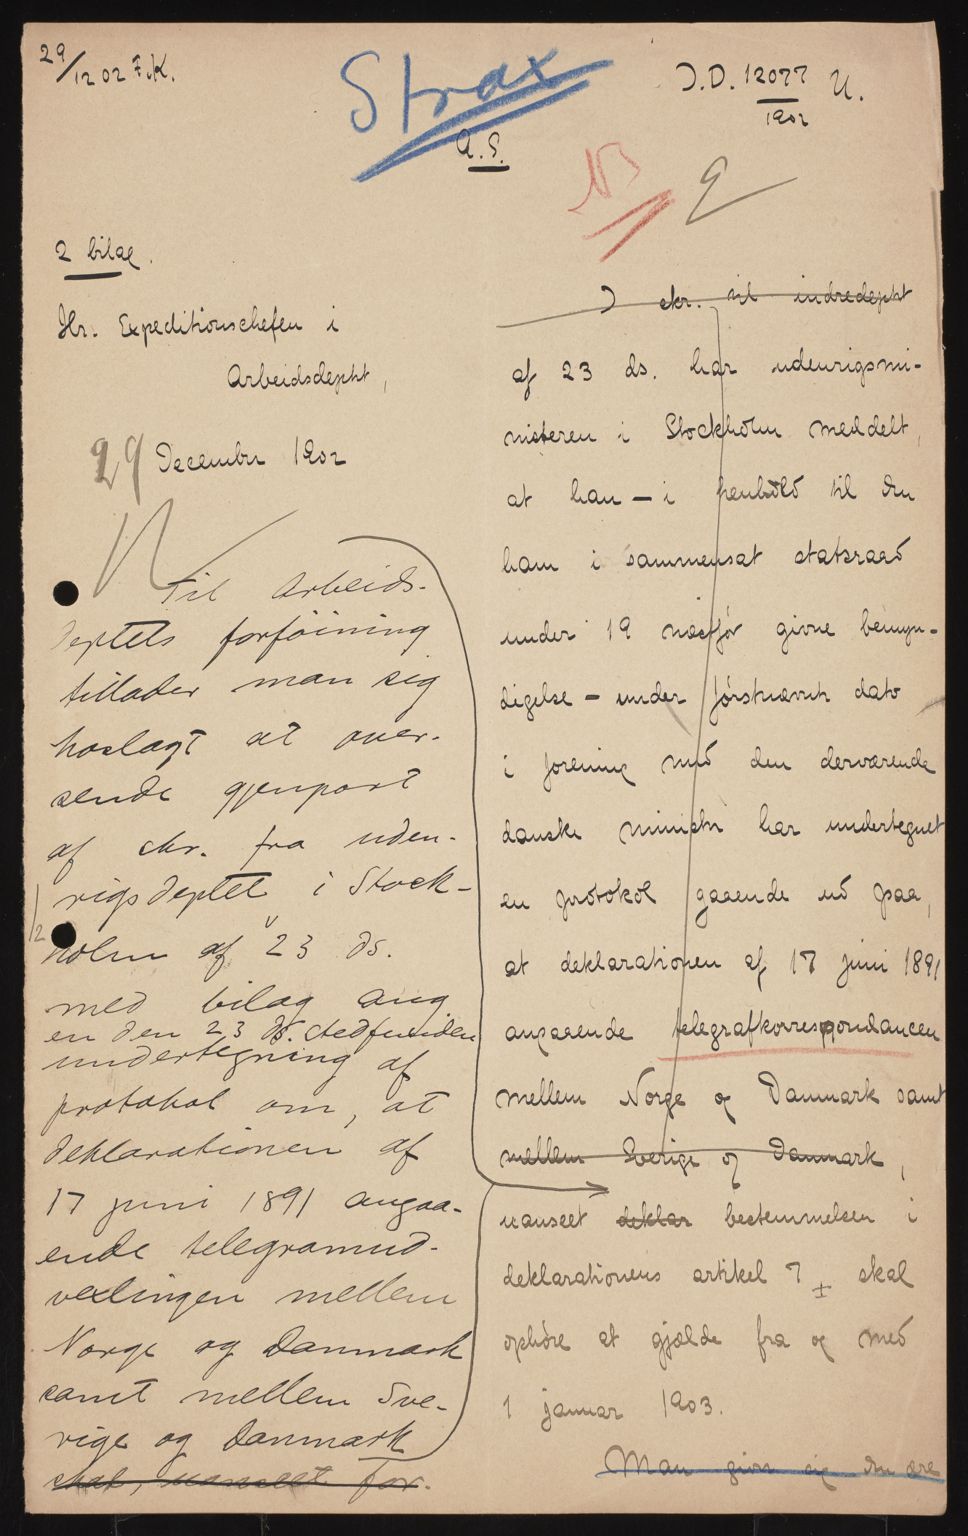 29/12 02 F.K.
Strax
J.D. 12077/1902 U.
A.S.
NB
2 bilag.
Hr. Expeditionschefen i
Arbeidsdeptet,
29 December 1902
Til Arbeids-
deptets forföining
tillader man sig
hoslagt at over-
sende gjenpart
af skr. fra uden-
rigsdeptet i Stock-
holm af 23 ds.
med bilag ang
en den 23 ds. stedfunden
undertegning af
protokol om, at
deklarationen af
17 juni 1891 angaa-
ende telegramud-
vexlingen mellem
Norge og Danmark
samt mellem Sve-
rige og Danmark
skal, uanseet for.
I skr. til indredeptet
af 23 ds. har udenrigsmi-
nisteren i Stockholm meddelt,
at han – i henhold til den
ham i sammensat statsraad
under 19 næstfør givne bemyn-
digelse – under førstnævnte dato
i forening med den derværende
danske minister har undertegnet
en protokol gaaende ud paa,
at deklarationen af 17 juni 1891
angaaende telegrafkorrespondancen
mellem Norge og Danmark samt
mellem Sverige og Danmark,
uanseet deklar bestemmelsen i
deklarationens artikel 7 skal
ophøre at gjælde fra og med
1 januar 1903.
Man giver sig den ære